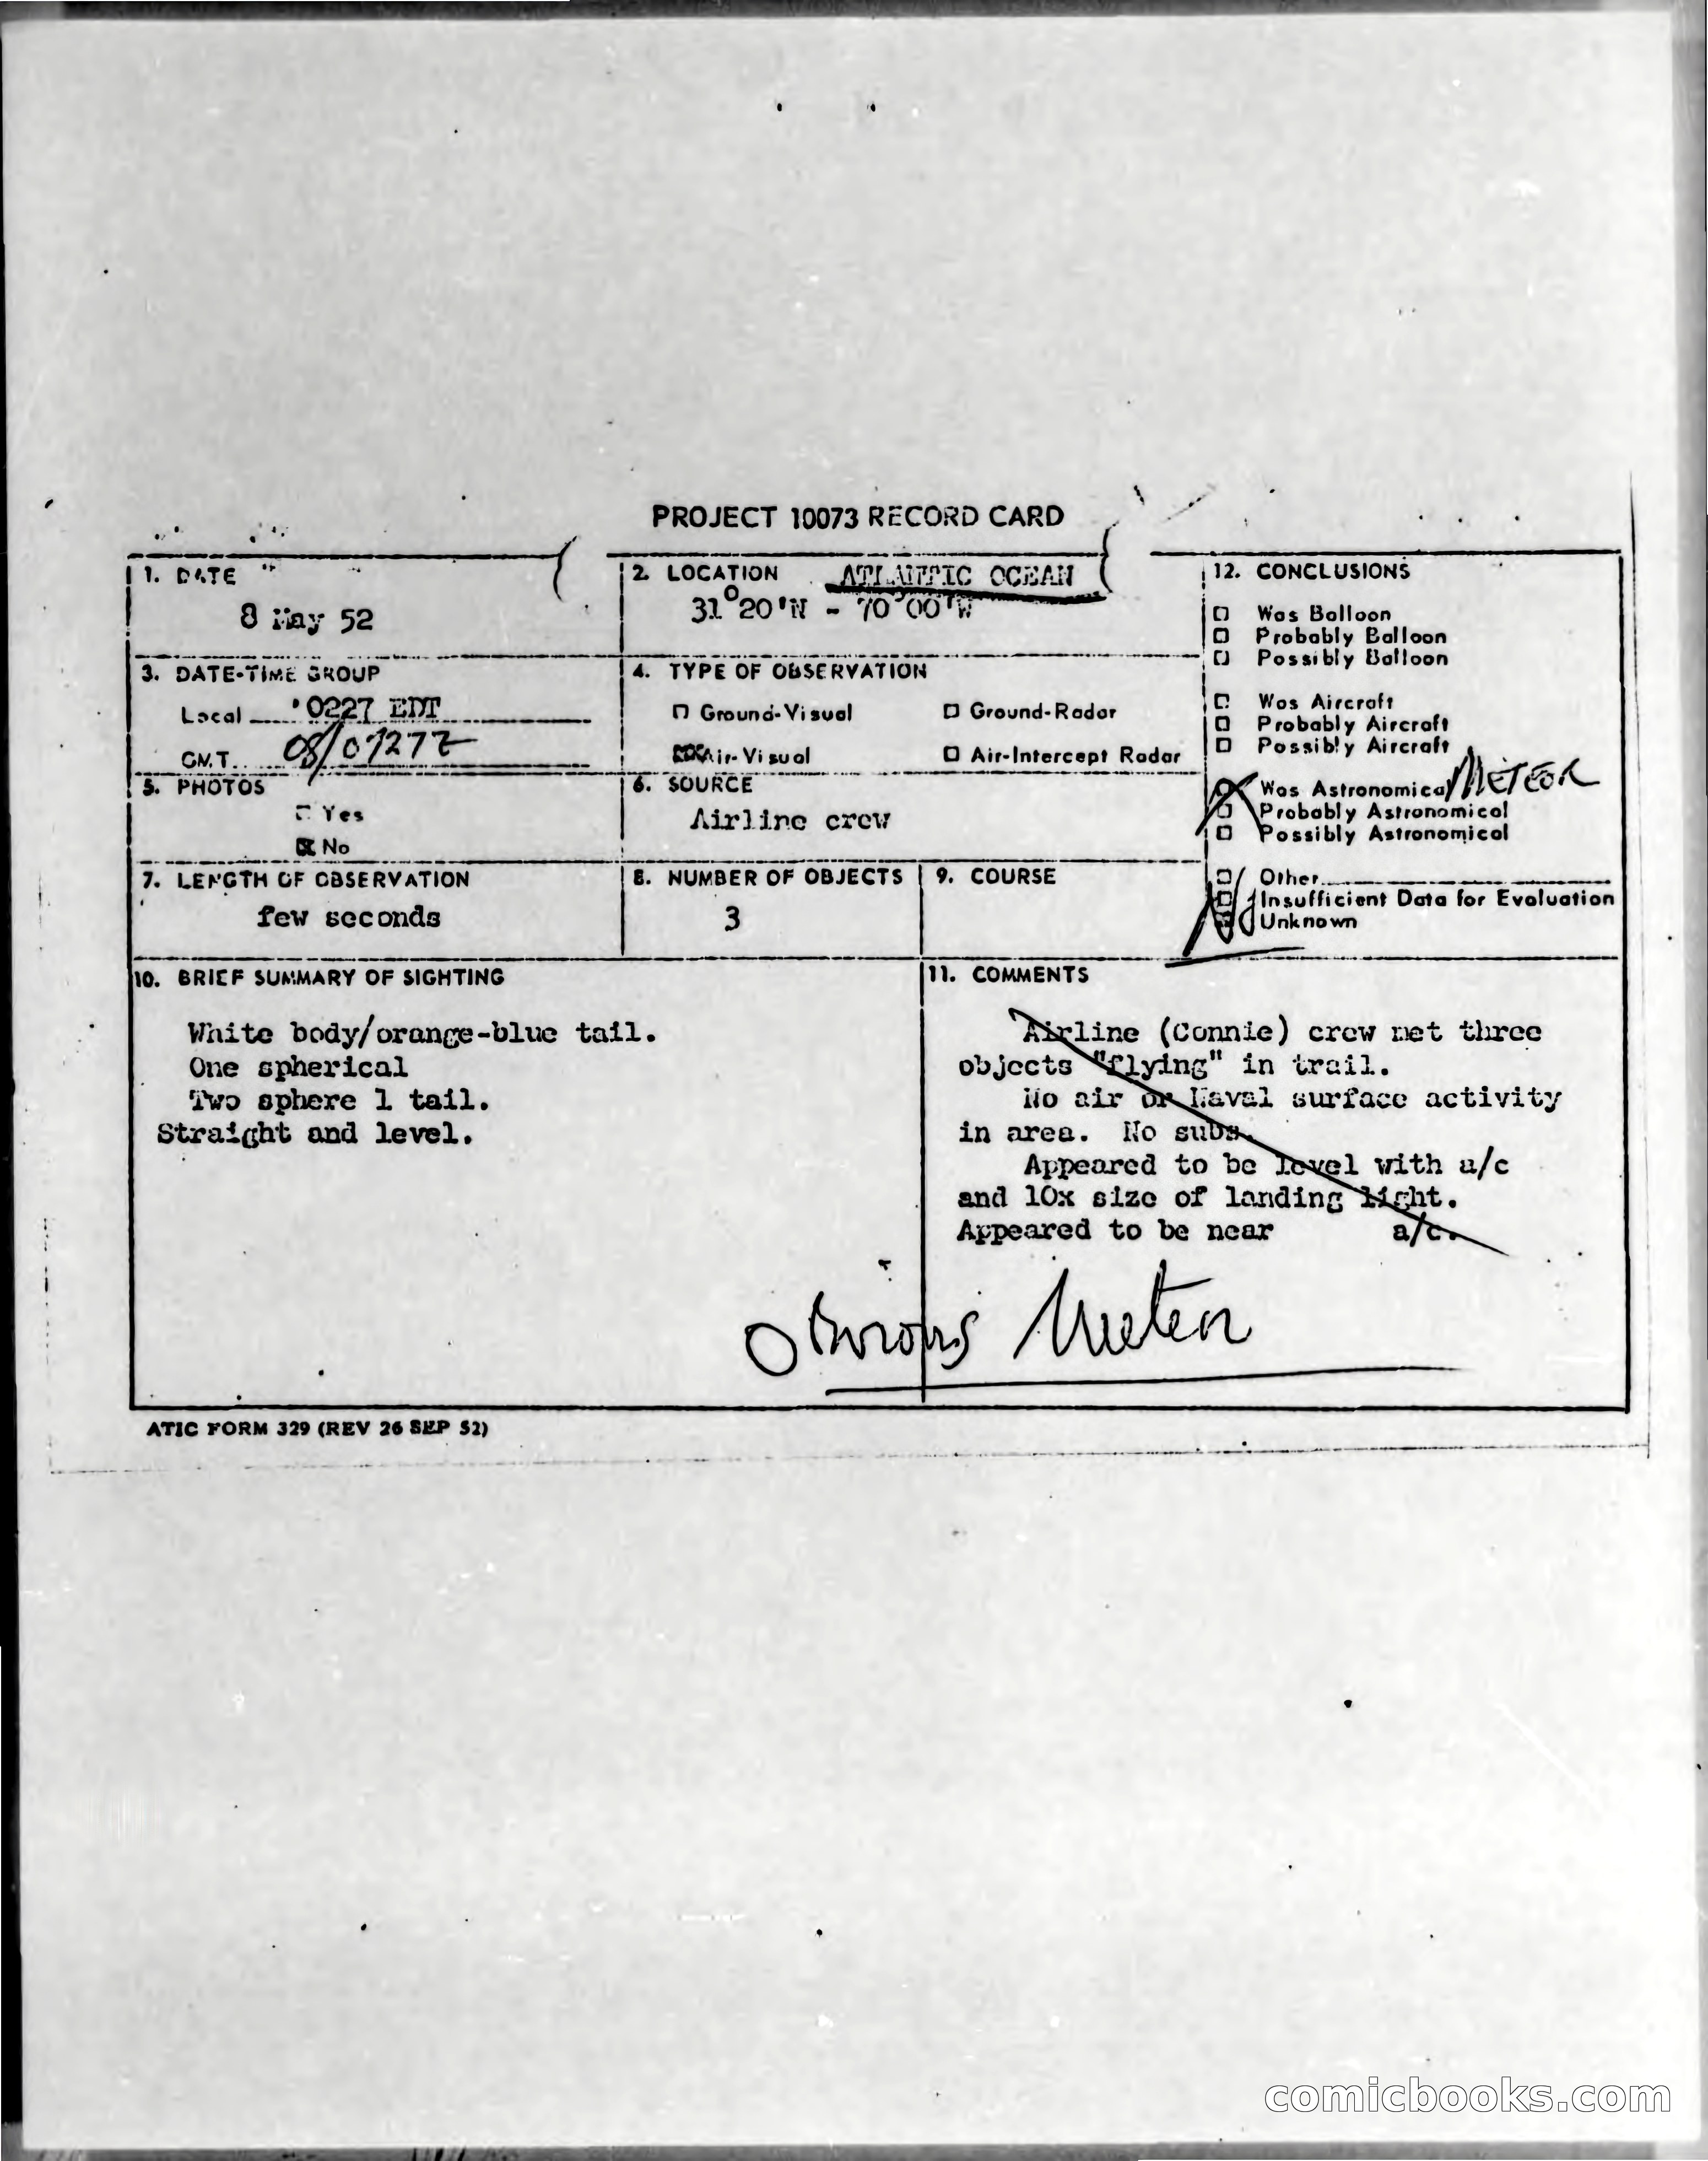 PROJECT 10073 RECORD CARD
1. DATE
8 May 52
2. LOCATION ATLANTIC OCEAN
31°20'N - 70°00'W
3. DATE-TIME GROUP
Local 0227 EDT
GMT. 08/0727Z
4. TYPE OF OBSERVATION
Ground-Visual Ground-Radar
Air-Visual Air-Intercept Radar
5. PHOTOS
Yes
No
6. SOURCE
Airline crew
7. LENGTH OF OBSERVATION
few seconds
8. NUMBER OF OBJECTS
3
9. COURSE
12. CONCLUSIONS
Was Balloon
Probably Balloon
Possibly Balloon
Was Aircraft
Probably Aircraft
Possibly Aircraft
Was Astronomical METEOR
Probably Astronomical
Possibly Astronomical
Other
Insufficient Data for Evaluation
Unknown
10. BRIEF SUMMARY OF SIGHTING
White body/orange-blue tail.
One spherical
Two sphere 1 tail.
Straight and level.
11. COMMENTS
Airline (Connie) crew met three
objects "flying" in trail.
No air or Naval surface activity
in area. No subs.
Appeared to be level with a/c
and 10x size of landing light.
Appeared to be near a/c.
Obvious Meteor
ATIC FORM 329 (REV 26 SEP 52)
comicbooks.com